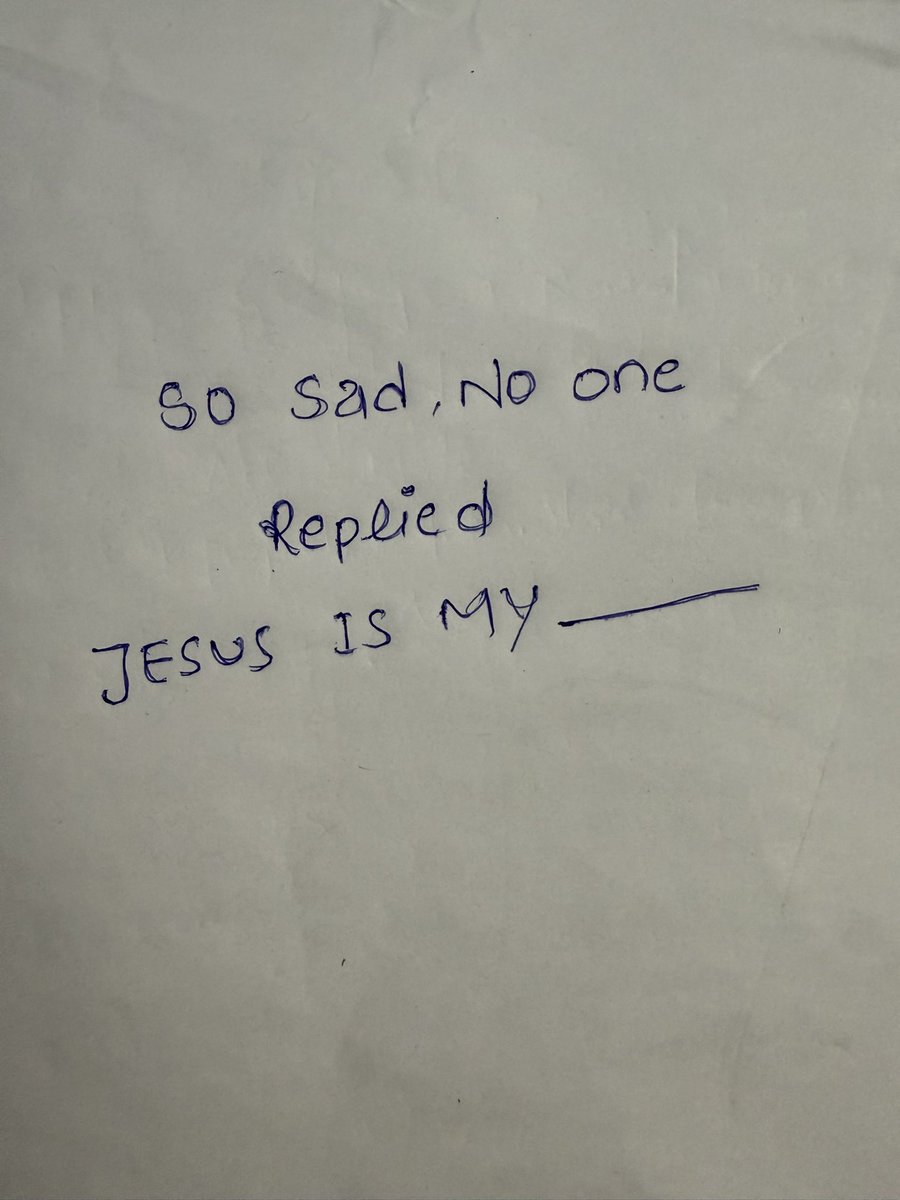 So sad, No one
Replied
JESUS IS MY ____